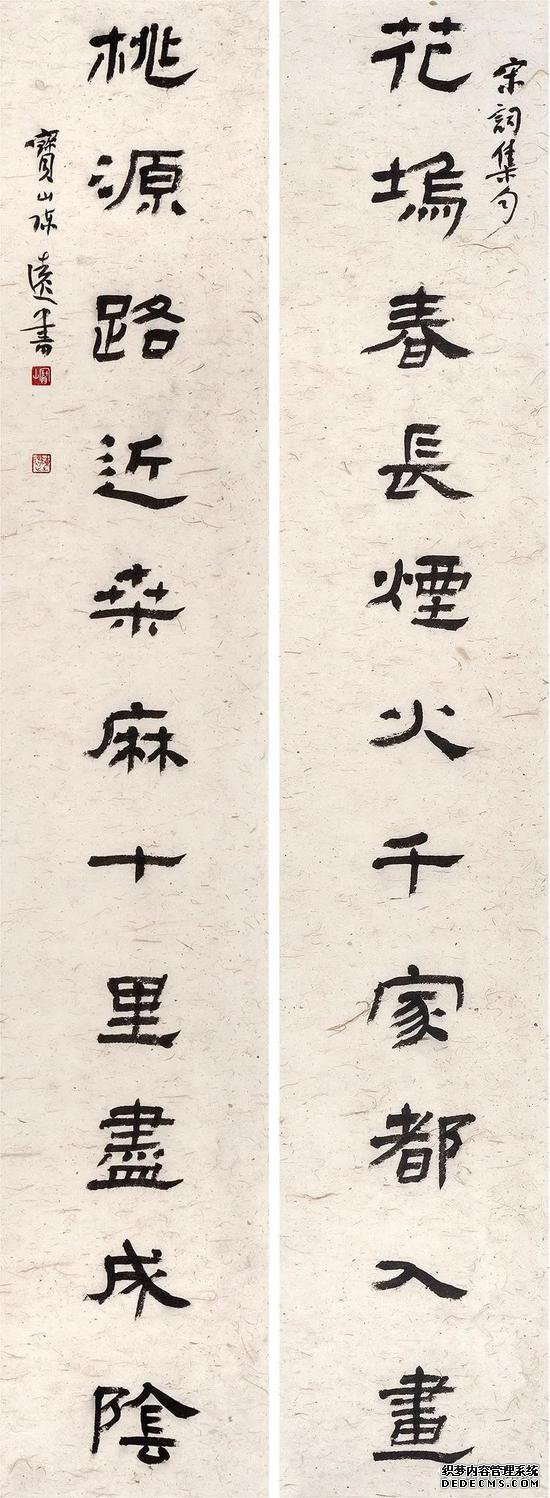 宋詞集句
花塢春長煙火千家都入畫
桃源路近桑麻十里盡成陰
寶山陳遠書
织梦内容管理系统
DEDECMS.COM